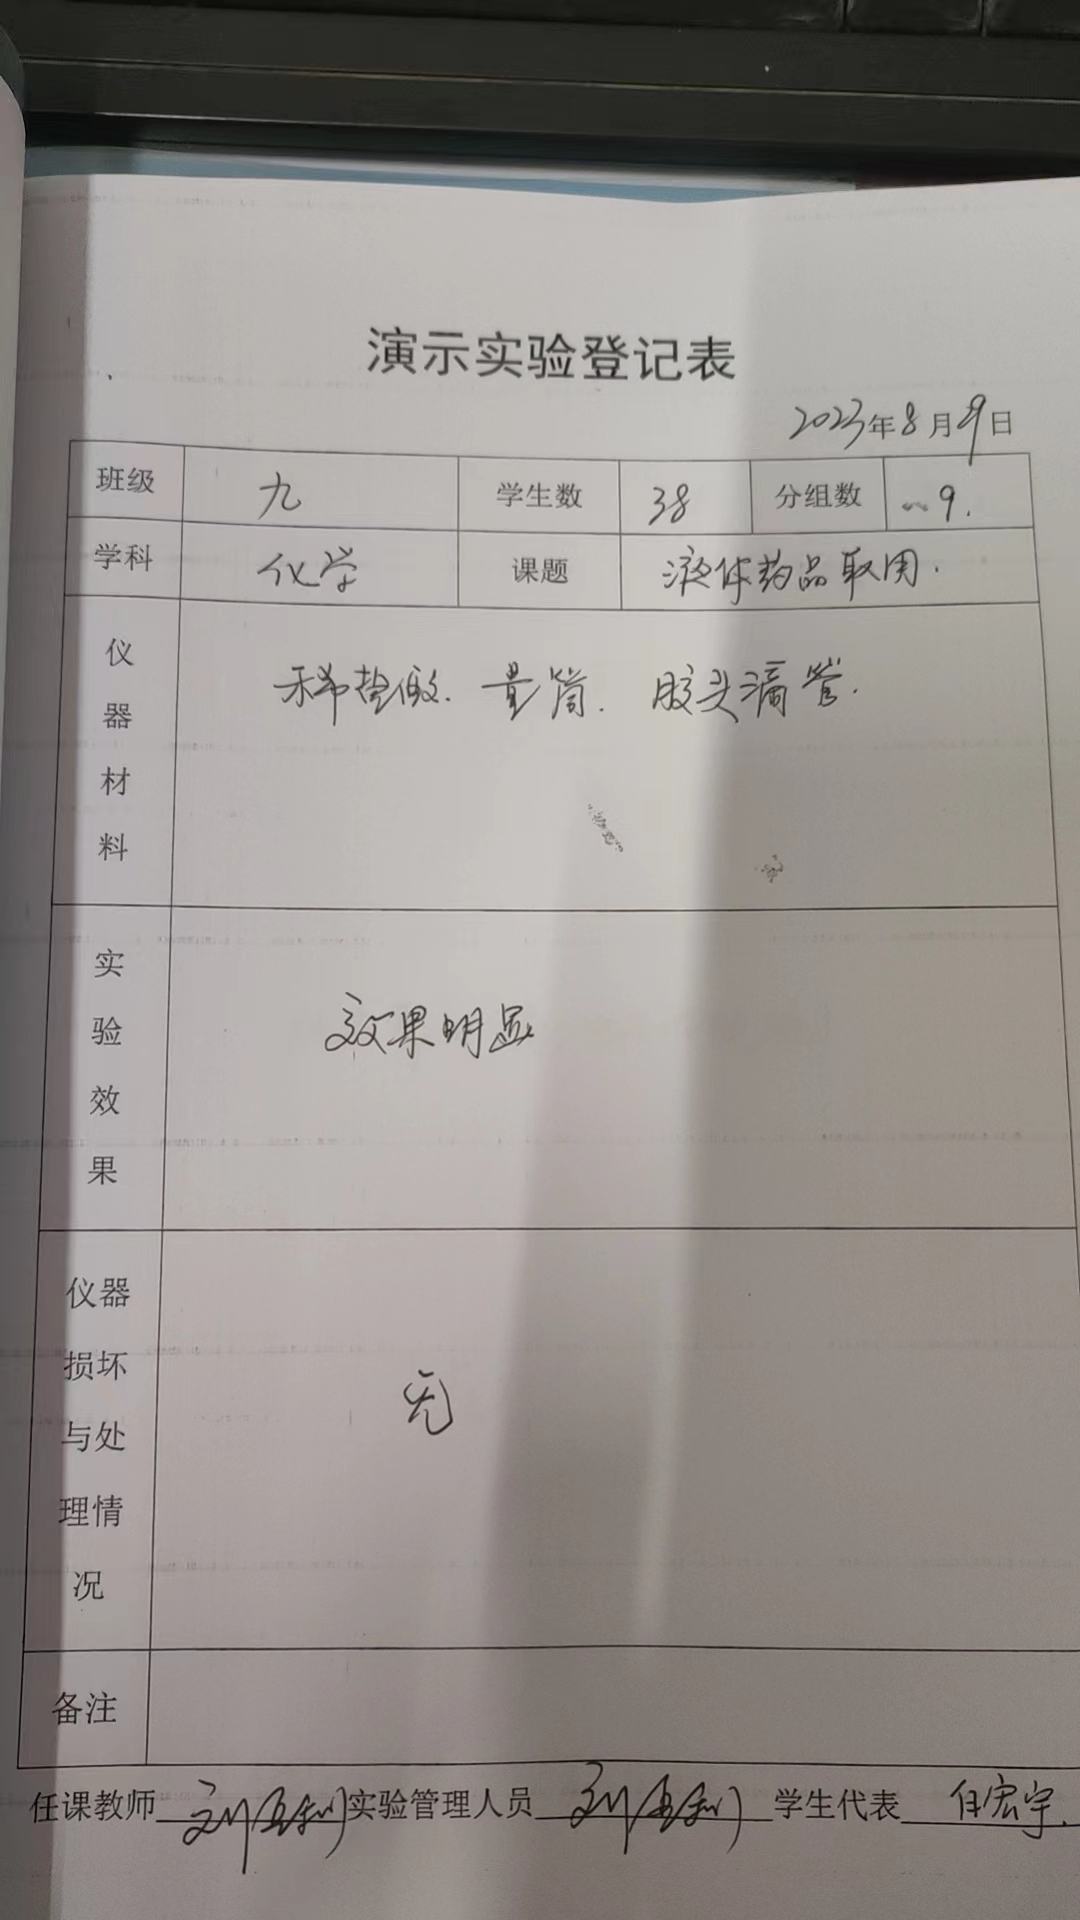 演示实验登记表
2023年8月9日
班级 九 学生数 38 分组数 9.
学科 化学 课题 液体药品取用.
仪器材料 稀盐酸. 量筒. 胶头滴管.
实验效果 效果明显
仪器
损坏
与处
理情
况 无
备注
任课教师 刘 实验管理人员 刘 学生代表 任宏宇.